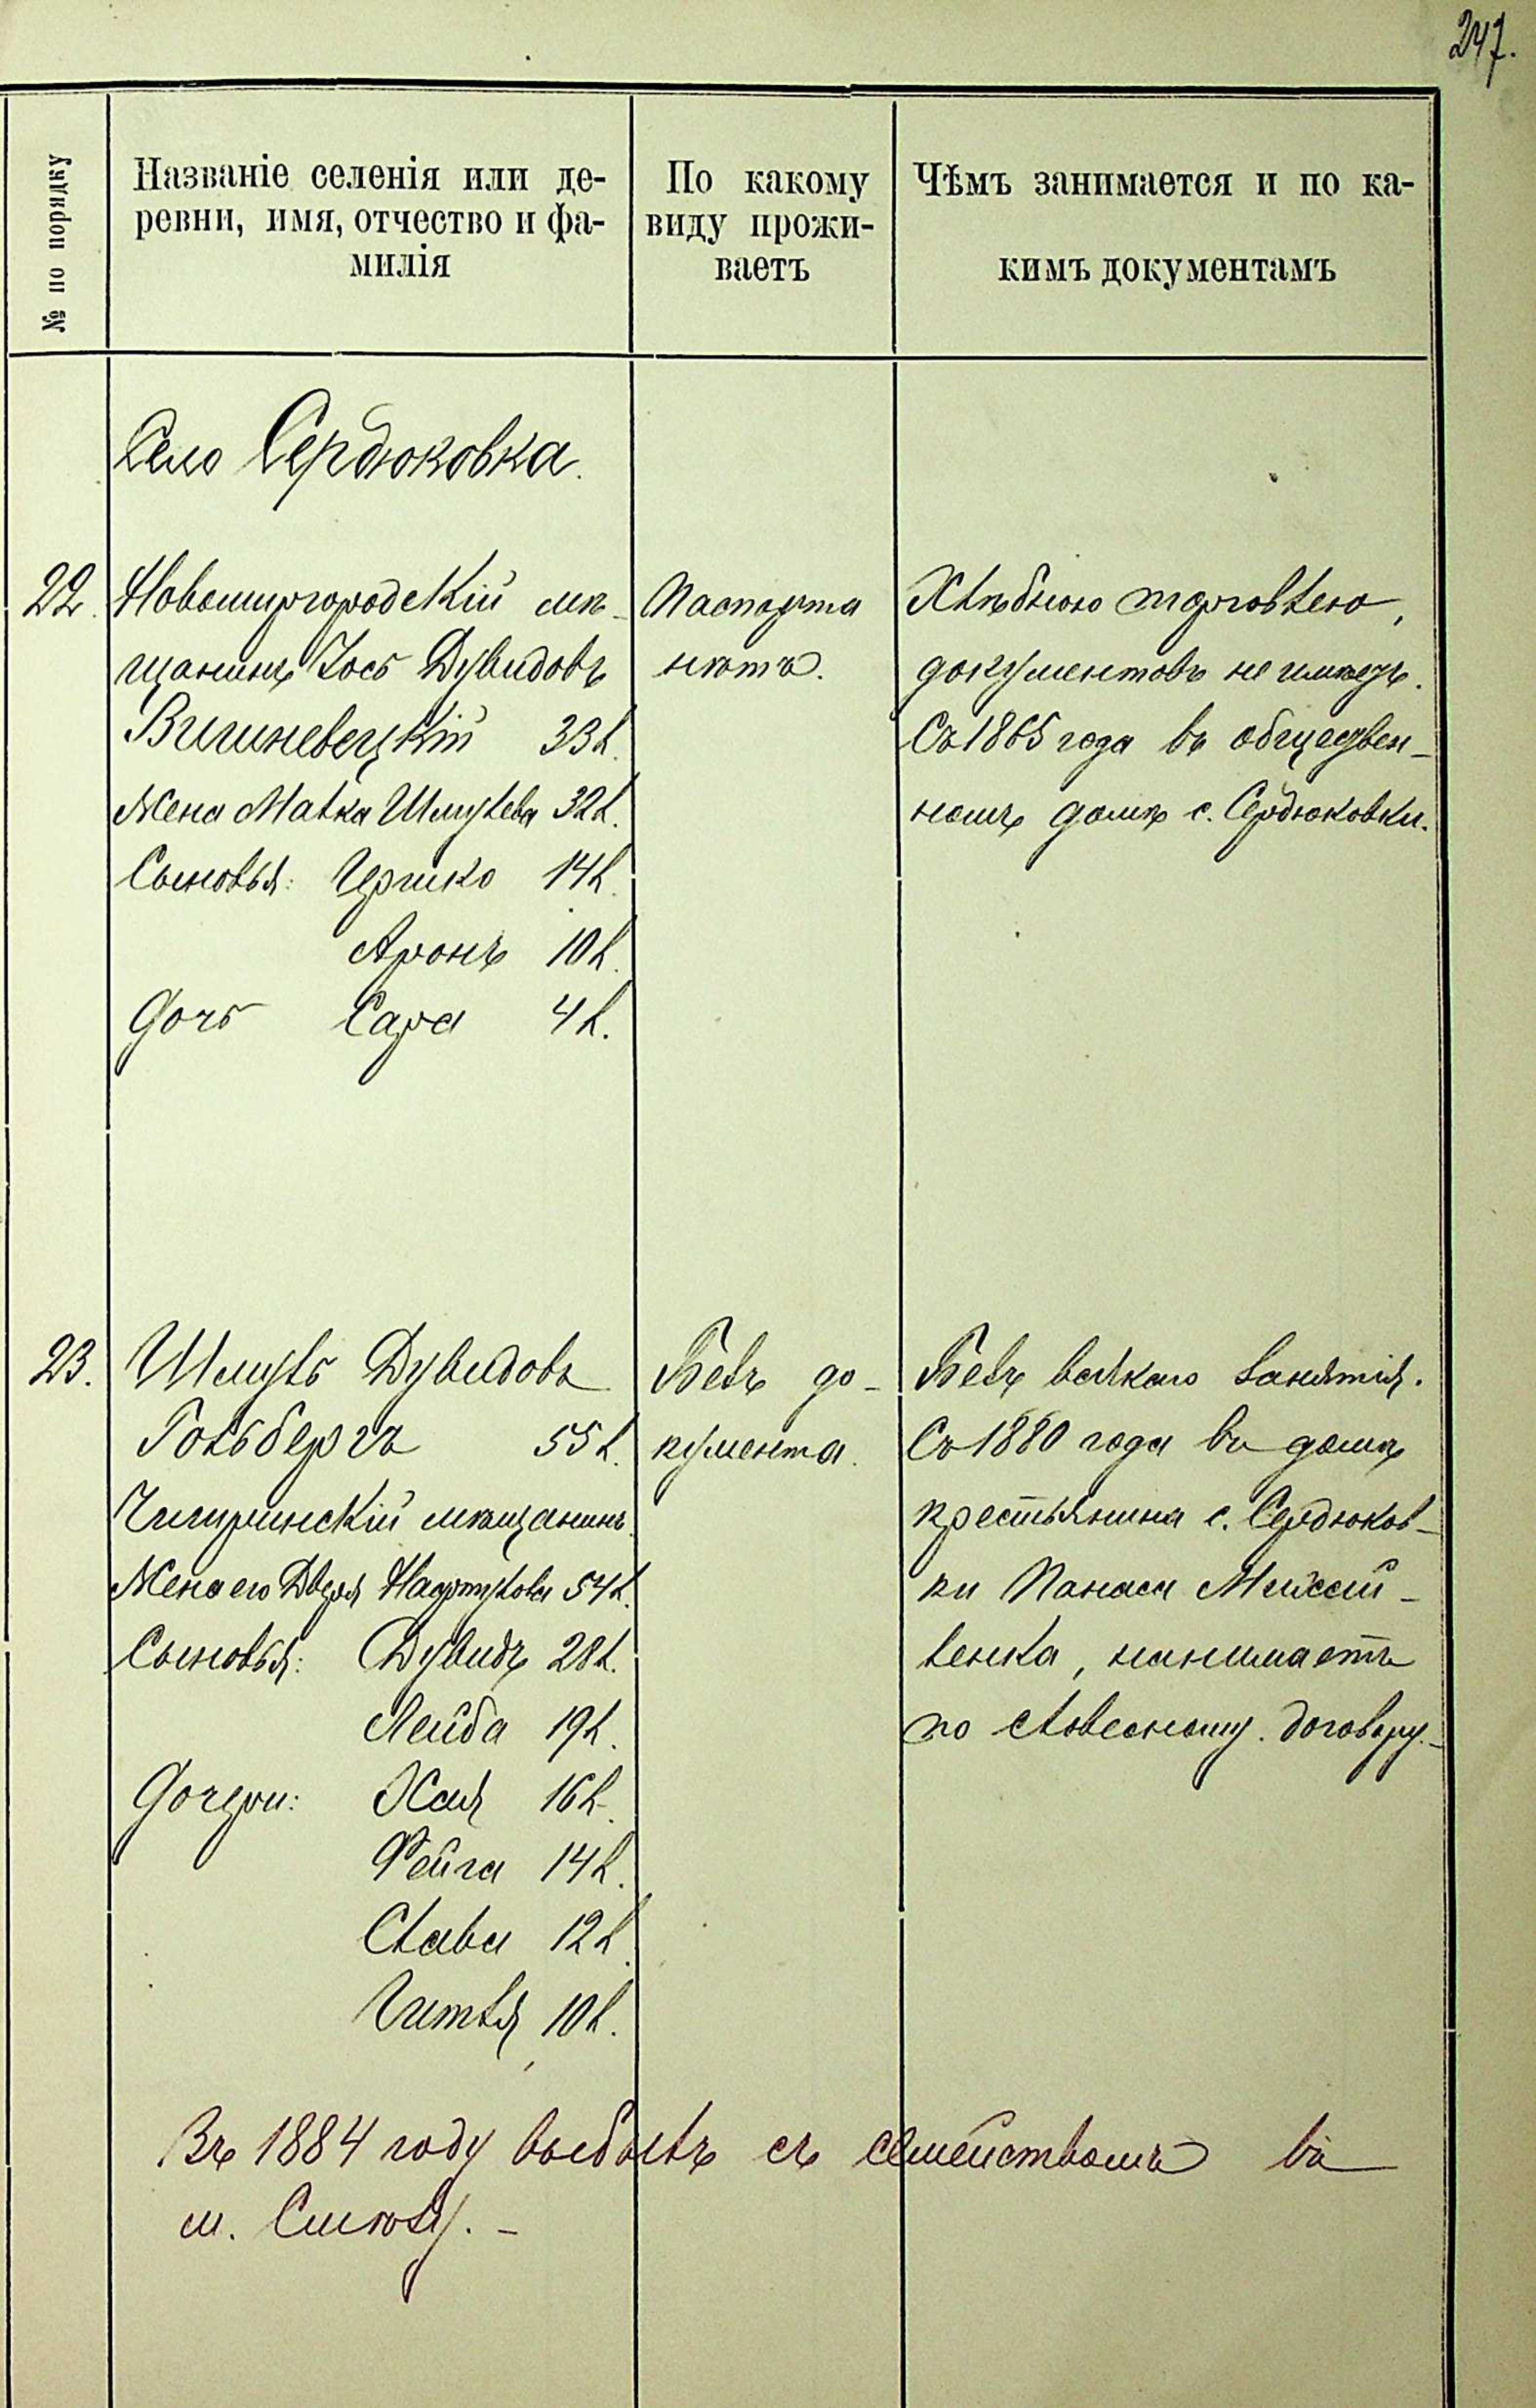 247.
№ по порядку
Названіе селенія или де-
ревни, имя, отчество и фа-
милія
По какому
виду прожи-
ваетъ
Чѣмъ занимается и по ка-
кимъ документамъ
Село Сердюковка.
22. Новомиргородскій мѣ-
щанинъ Іось Дувидовъ
Вишневецкій 33 л.
Жена Малка Шмулева 32 л.
Сыновья: Иршко 14 л.
Аронъ 10 л.
Дочь Сара 4 л.
Паспорта
нѣтъ.
Хлѣбною торговлею,
документовъ не имѣетъ.
Съ 1865 года въ обществен-
номъ домѣ с. Сердюковки.
23. Шмуль Дувидовъ
Гольбергъ 55 л.
Чигиринскій мѣщанинъ.
Жена его Двейра 54 л.
Сыновья: Дувидъ 28 л.
Лейба 19 л.
Дочери: Хая 16 л.
Фейга 14 л.
Слава 12 л.
Гитля 10 л.
Безъ до-
кумента.
Безъ всякаго занятія.
Съ 1880 года въ домѣ
крестьянина с. Сердюков-
ки Панаса Мойсей-
венка, нанимаетъ
по словесному договору.-
Въ 1884 году выбылъ съ семействомъ въ
м. Смѣлу. -